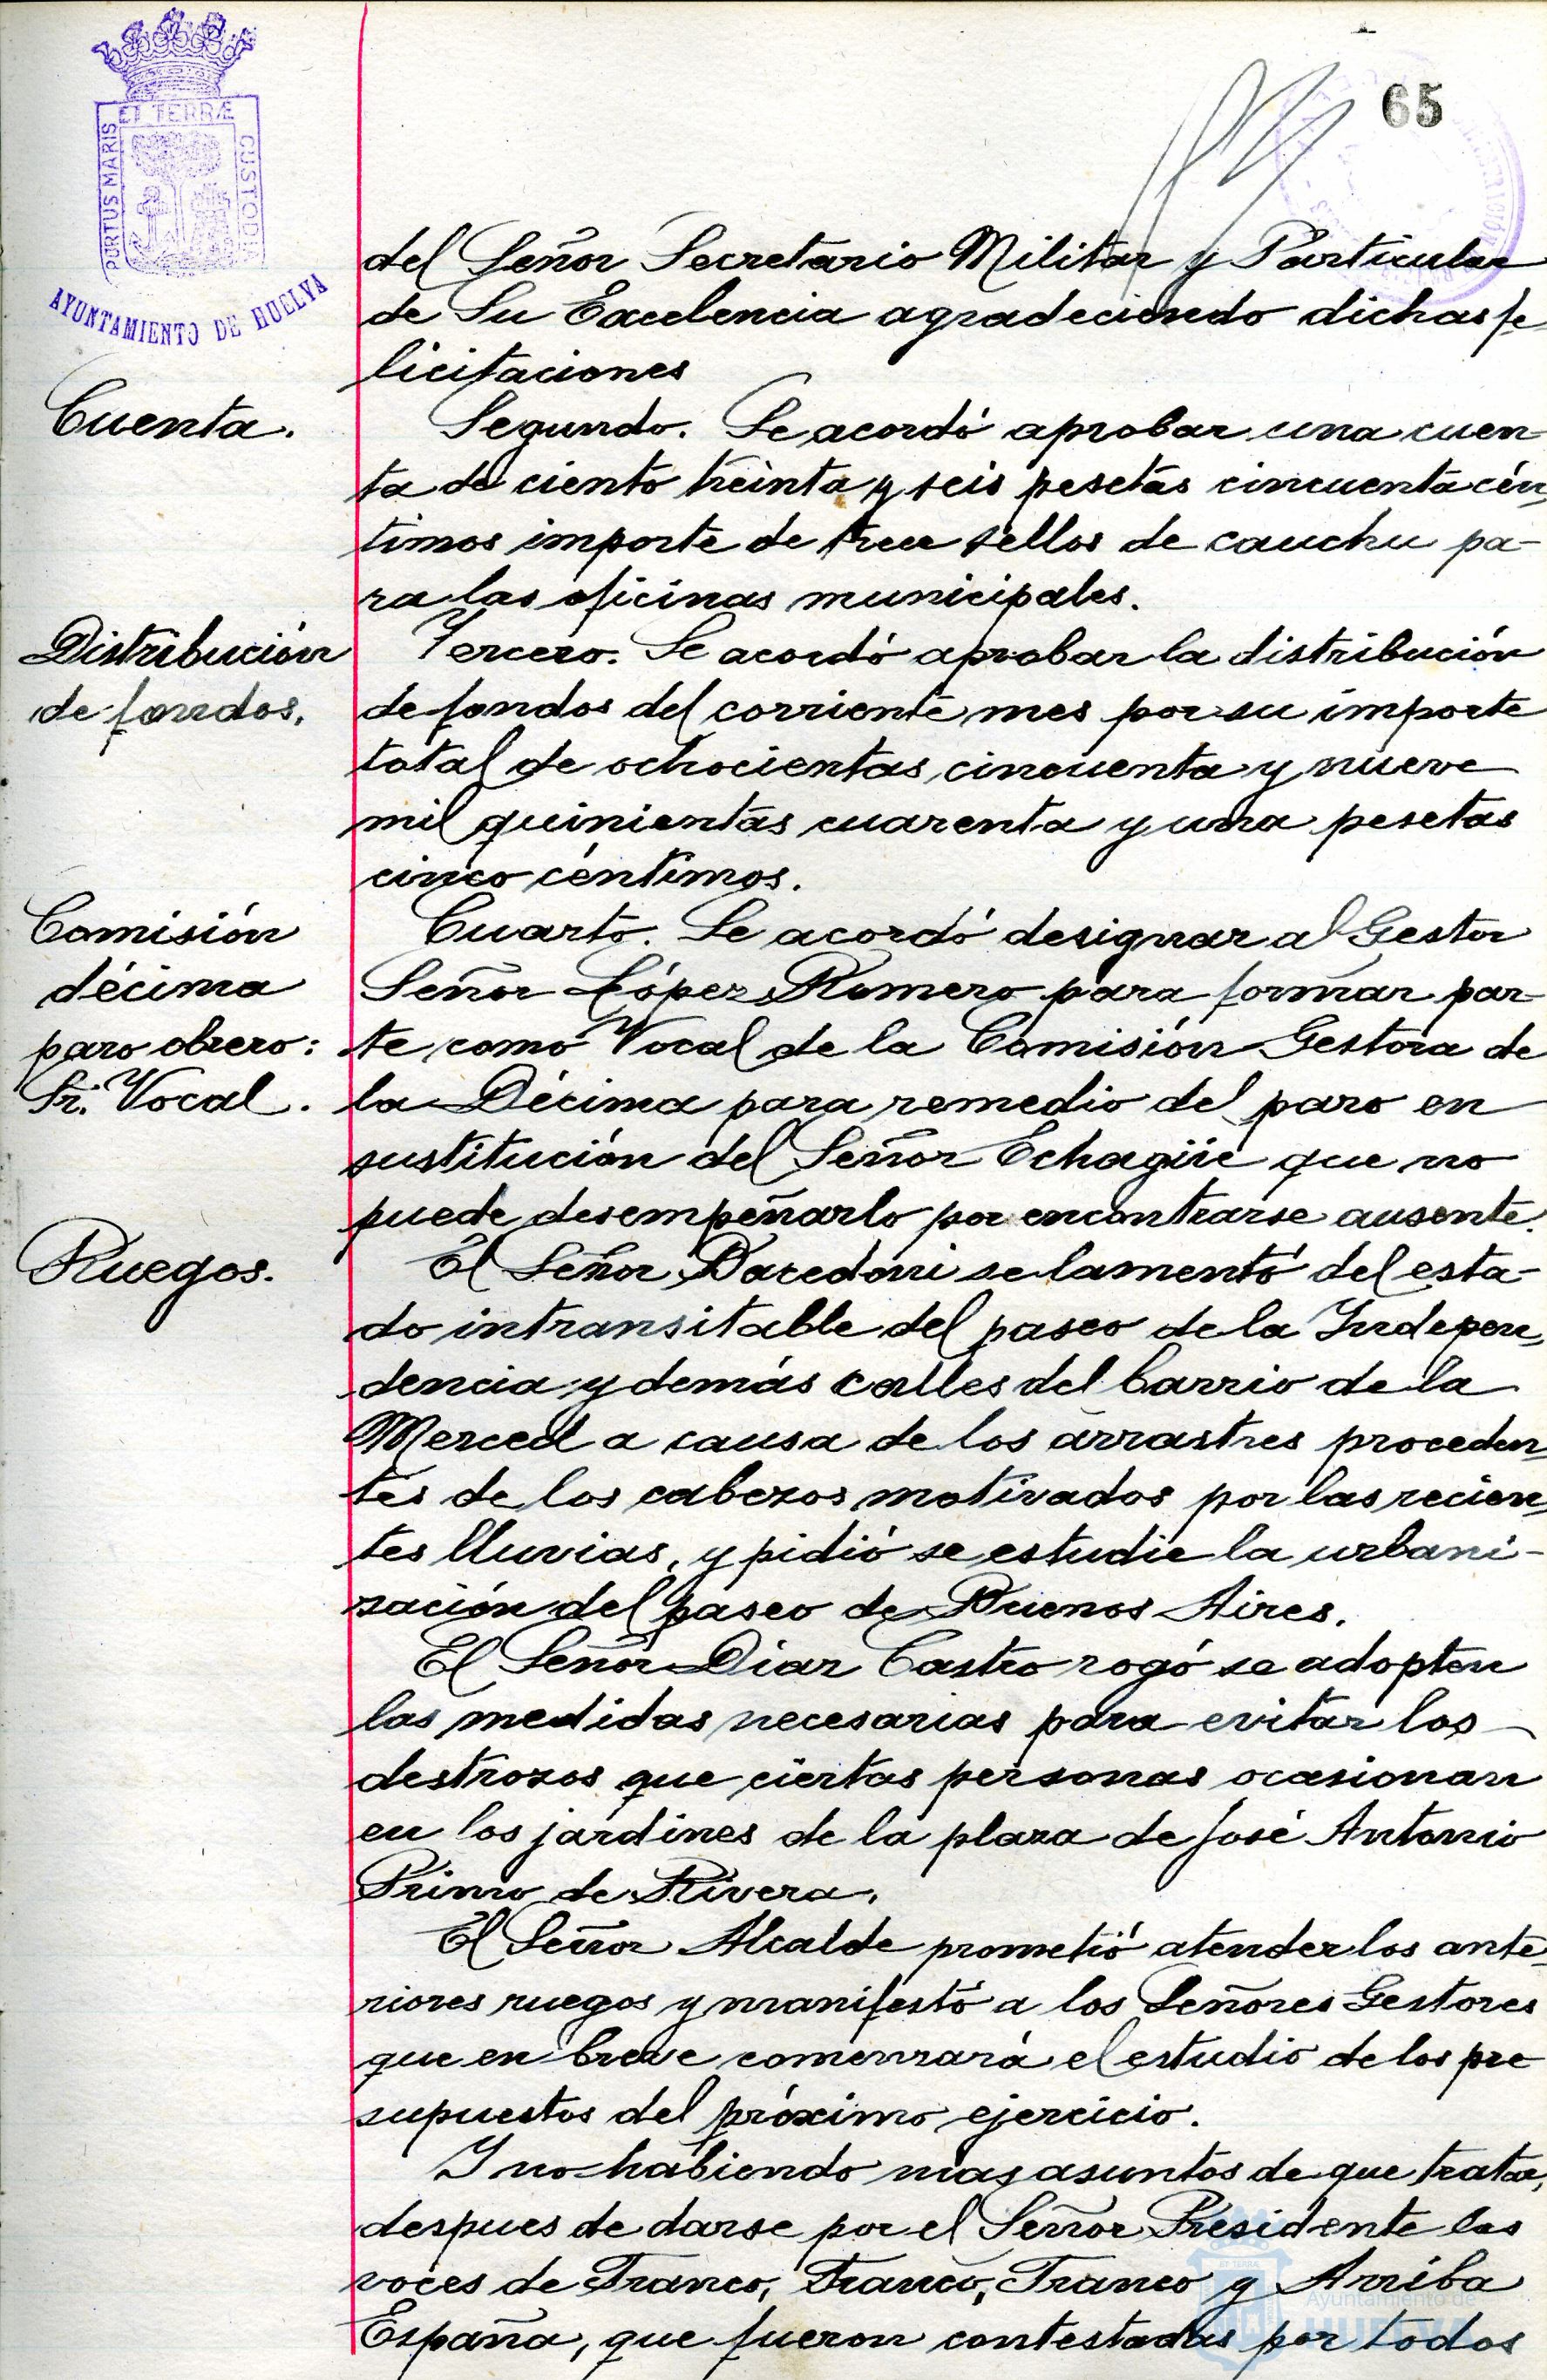 65
ET TERRÆ
PORTUS MARIS
CUSTODIA
AYUNTAMIENTO DE HUELVA
del Señor Secretario Militar y Particular
de Su Excelencia agradeciendo dichas fe
licitaciones
Cuenta.
Segundo. Se acordó aprobar una cuen-
ta de ciento treinta y seis pesetas cincuenta cén
timos importe de trece sellos de cauchu pa-
ra las oficinas municipales.
Distribución
de fondos.
Tercero. Se acordó aprobar la distribución
de fondos del corriente mes por su importe
total de ochocientas cincuenta y nueve
mil quinientas cuarenta y una pesetas
cinco céntimos.
Comisión
décima
paro obrero:
Sr. Vocal.
Cuarto. Se acordó designar al Gestor
Señor López Romero para formar par-
te como Vocal de la Comisión Gestora de
la Décima para remedio del paro en
sustitución del Señor Echagüe que no
puede desempeñarlo por encontrarse ausente.
Ruegos.
El Señor se lamentó del esta-
do intransitable del paseo de la Indepen
dencia y demás calles del barrio de la
Merced a causa de los arrastres proceden
tes de los cabezos motivados por las recien
tes lluvias, y pidió se estudie la urbani-
zación del paseo de Buenos Aires.
El Señor Diaz Castro rogó se adopten
las medidas necesarias para evitar los
destrozos que ciertas personas ocasionan
en los jardines de la plaza de José Antonio
Primo de Rivera.
El Señor Alcalde prometió atender los ante
riores ruegos y manifestó a los Señores Gestores
que en breve comenzará el estudio de los pre
supuestos del próximo ejercicio.
Y no habiendo mas asuntos de que tratar,
despues de darse por el Señor Presidente las
voces de Franco, Franco, Franco y Arriba
España, que fueron contestadas por todos
Ayuntamiento de
HUELVA